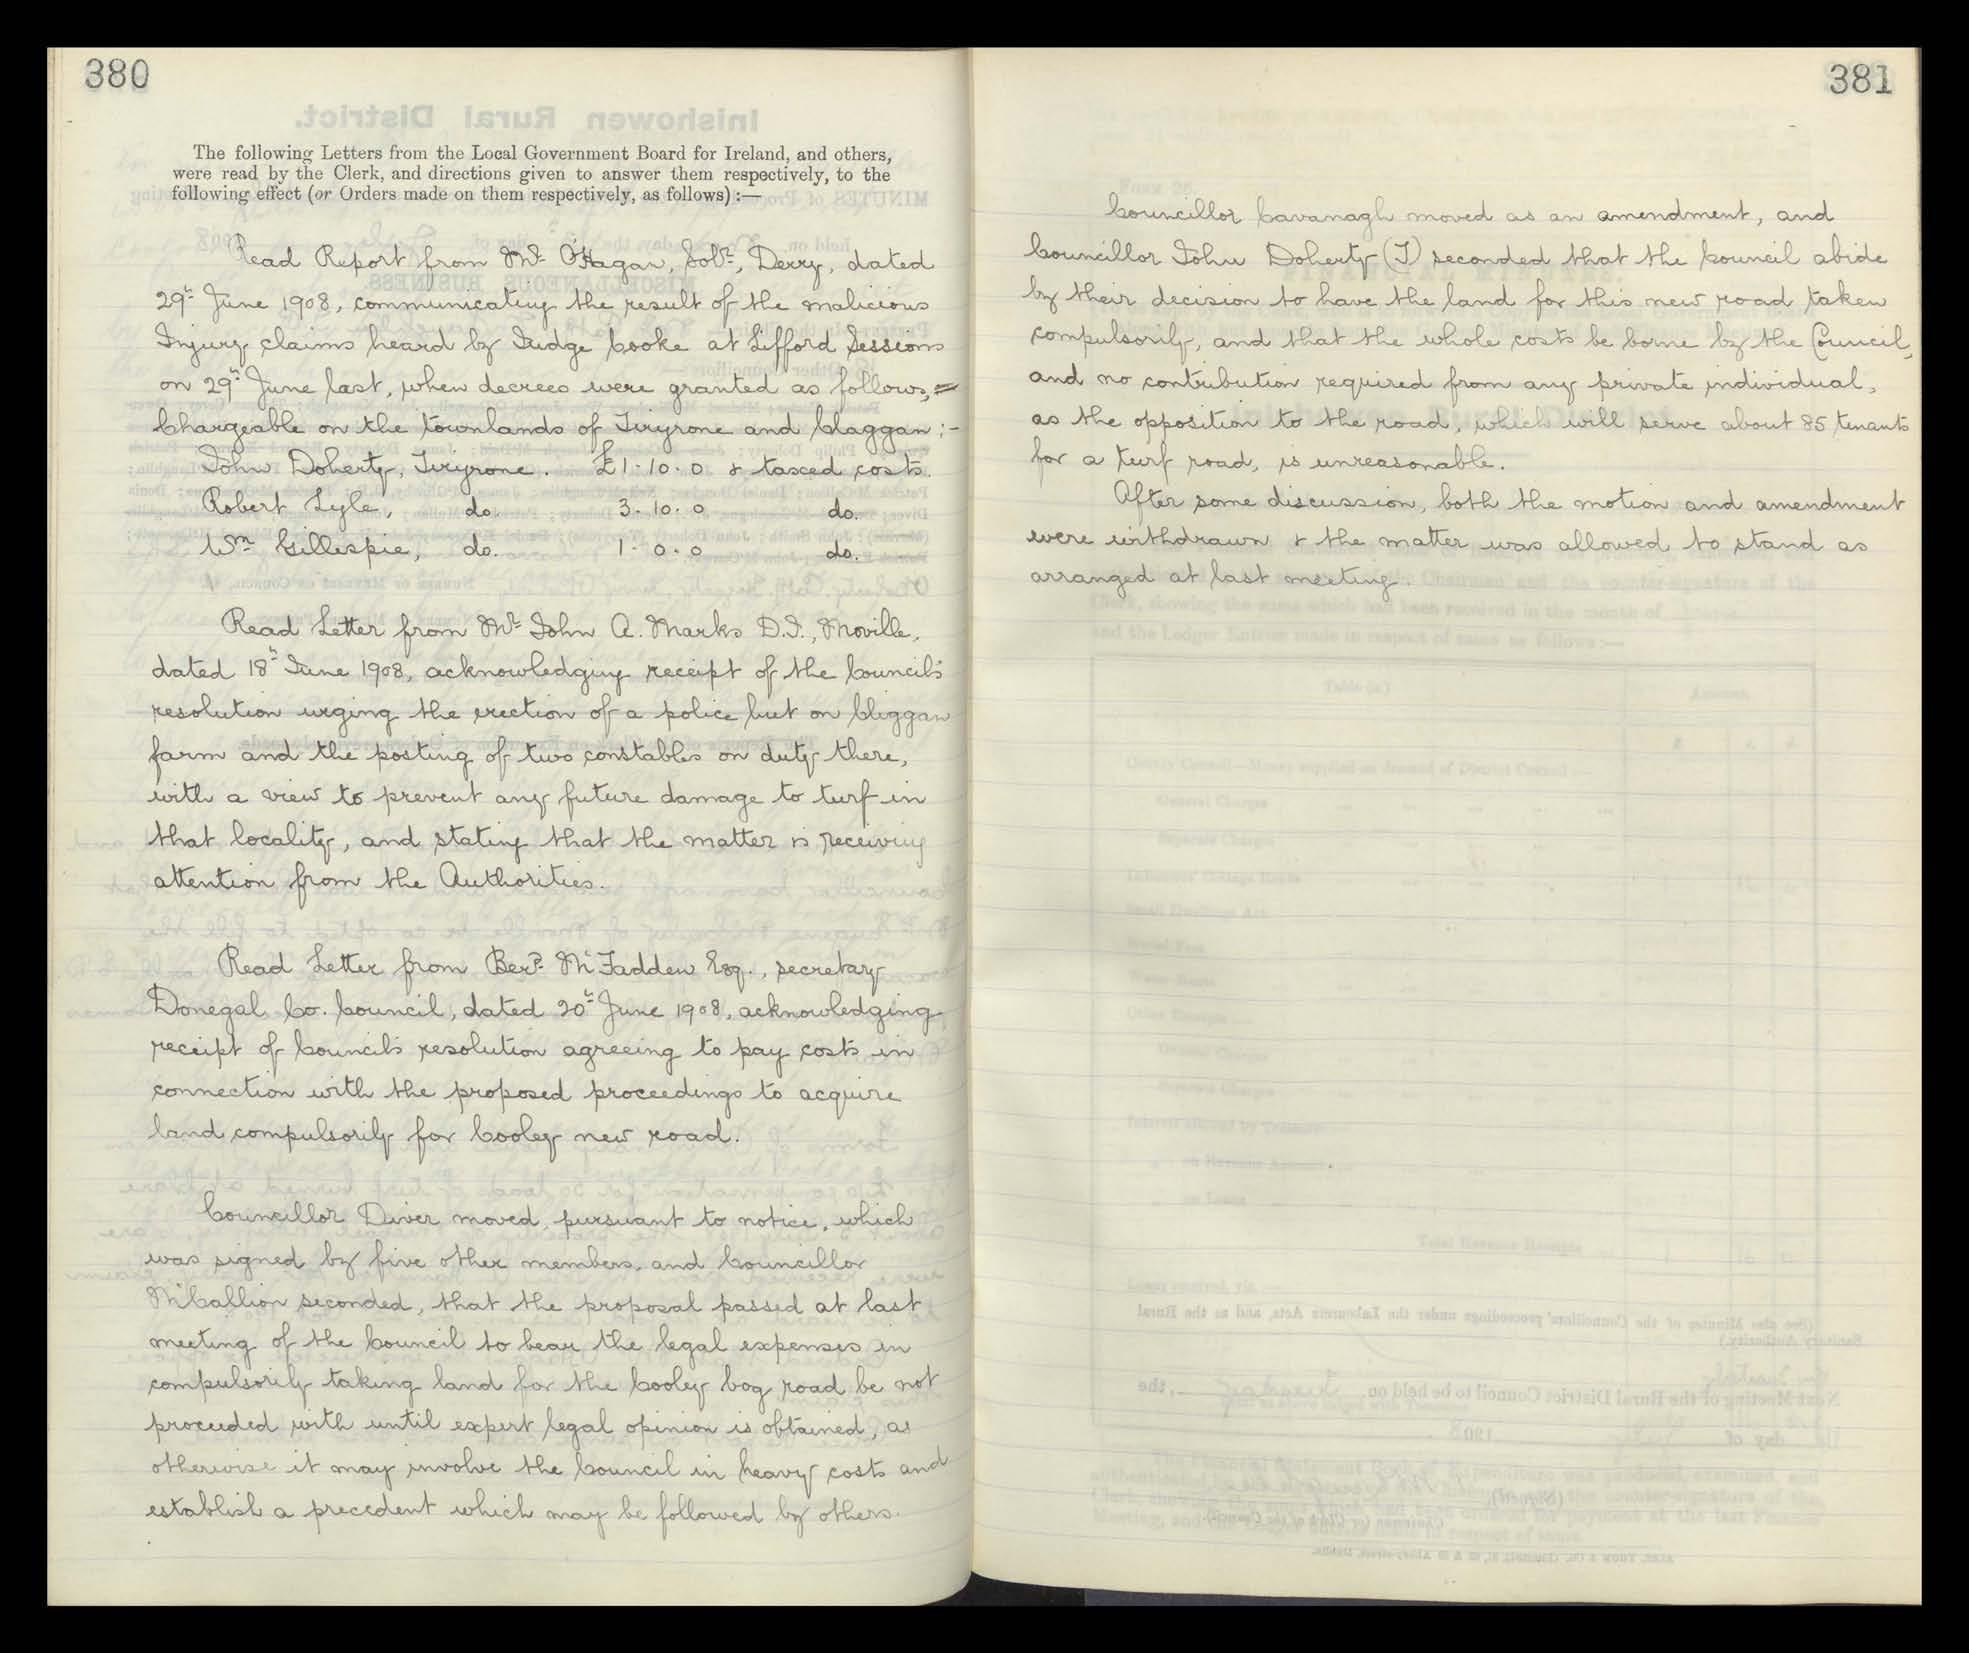 380
The following Letters from the Local Government Board for Ireland, and others,
were read by the Clerk, and directions given to answer them respectively, to the
following effect (or Orders made on them respectively, as follows) :—
Read Report from Mr. O'Hagan, Solr., Derry, dated
29th June 1908, communicating the result of the malicious
Injury claims heard by Judge Cooke at Lifford Sessions
on 29th June last, when decrees were granted as follows,=
Chargeable on the townlands of Tiryrone and Claggan :-
John Doherty, Tiryrone. £1.10.0 & taxed costs.
Robert Lyle, do. 3.10.0 do.
Wm Gillespie, do. 1.0.0 do.
Read Letter from Mr John A. Marks D.I., Moville,
dated 18th June 1908, acknowledging receipt of the Council's
resolution urging the erection of a police hut on Cliggan
farm and the posting of two constables on duty there,
with a view to prevent any future damage to turf in
that locality, and stating that the matter is receiving
attention from the Authorities.
Read Letter from Berd. McFadden Esq., secretary
Donegal Co. Council, dated 20th June 1908, acknowledging
receipt of Council's resolution agreeing to pay costs in
connection with the proposed proceedings to acquire
land compulsorily for Cooley new road.
Councillor Diver moved, pursuant to notice, which
was signed by five other members, and Councillor
McCallion seconded, that the proposal passed at last
meeting of the Council to bear the legal expenses in
compulsorily taking land for the Cooley bog road be not
proceeded with until expert legal opinion is obtained, as
otherwise it may involve the Council in heavy costs and
establish a precedent which may be followed by others.
381
Councillor Cavanagh moved as an amendment, and
Councillor John Doherty (T) seconded that the Council abide
by their decision to have the land for this new road taken
compulsorily, and that the whole costs be borne by the Council,
and no contribution required from any private individual,
as the opposition to the road, which will serve about 85 tenants
for a turf road, is unreasonable.
After some discussion, both the motion and amendment
were withdrawn & the matter was allowed to stand as
arranged at last meeting.